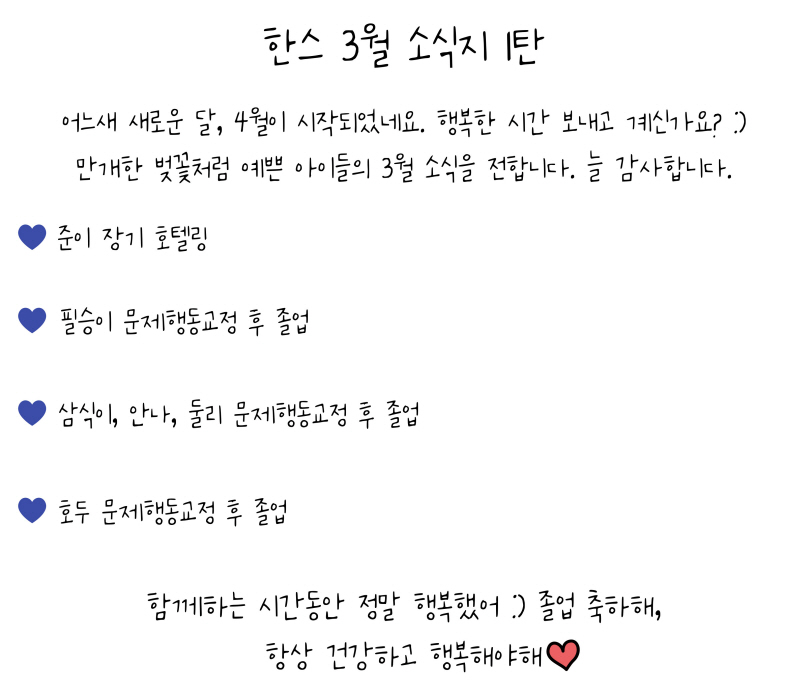 한스 3월 소식지 1탄
어느새 새로운 달, 4월이 시작되었네요. 행복한 시간 보내고 계신가요? :)
만개한 벚꽃처럼 예쁜 아이들의 3월 소식을 전합니다. 늘 감사합니다.
💙 준이 장기 호텔링
💙 필승이 문제행동교정 후 졸업
💙 삼식이, 안나, 둘리 문제행동교정 후 졸업
💙 호두 문제행동교정 후 졸업
함께하는 시간동안 정말 행복했어 :) 졸업 축하해,
항상 건강하고 행복해야해❤️